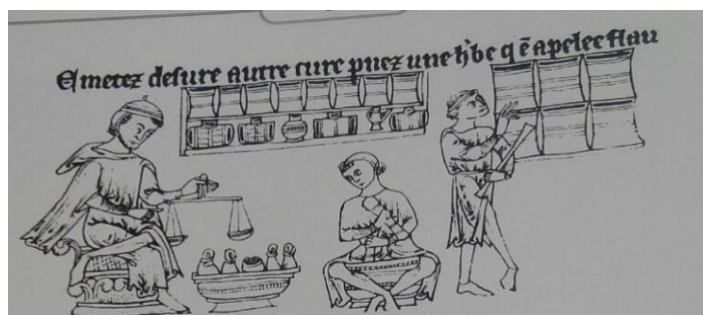 Et metez desure autre cure pnez une h'be q ē apelee flau